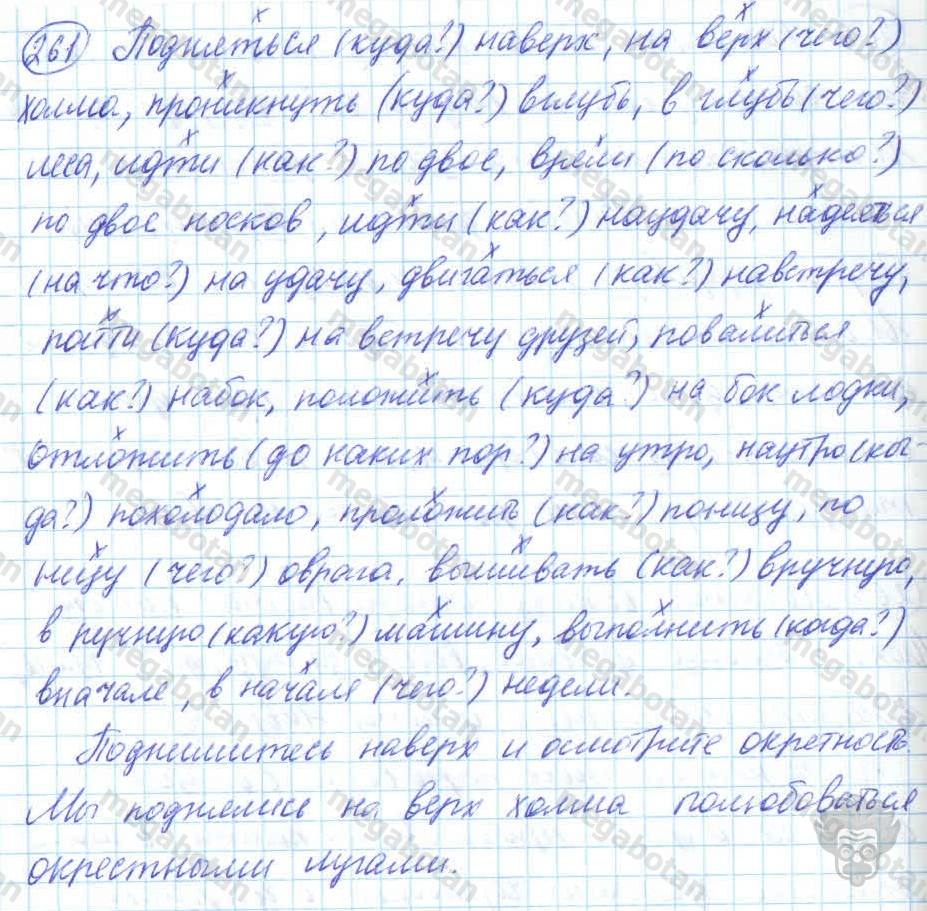 261 Подняться (куда?) наверх, на верх (чего?)
холма, проникнуть (куда?) вглубь, в глубь (чего?)
леса, идти (как?) по двое, взяли (по сколько?)
по двое носков, идти (как?) наудачу, надеяться
(на что?) на удачу, двигаться (как?) навстречу,
пойти (куда?) на встречу друзей, повалиться
(как?) набок, положить (куда?) на бок лодки,
отложить (до каких пор?) на утро, наутро (ког-
да?) похолодало, проложить (как?) понизу, по
низу (чего?) оврага, вышивать (как?) вручную,
в ручную (какую?) машину, выполнить (когда?)
вначале, в начале (чего?) недели.
Поднимитесь наверх и осмотрите окрестность.
Мы поднялись на верх холма полюбоваться
окрестными лугами.
megabotan